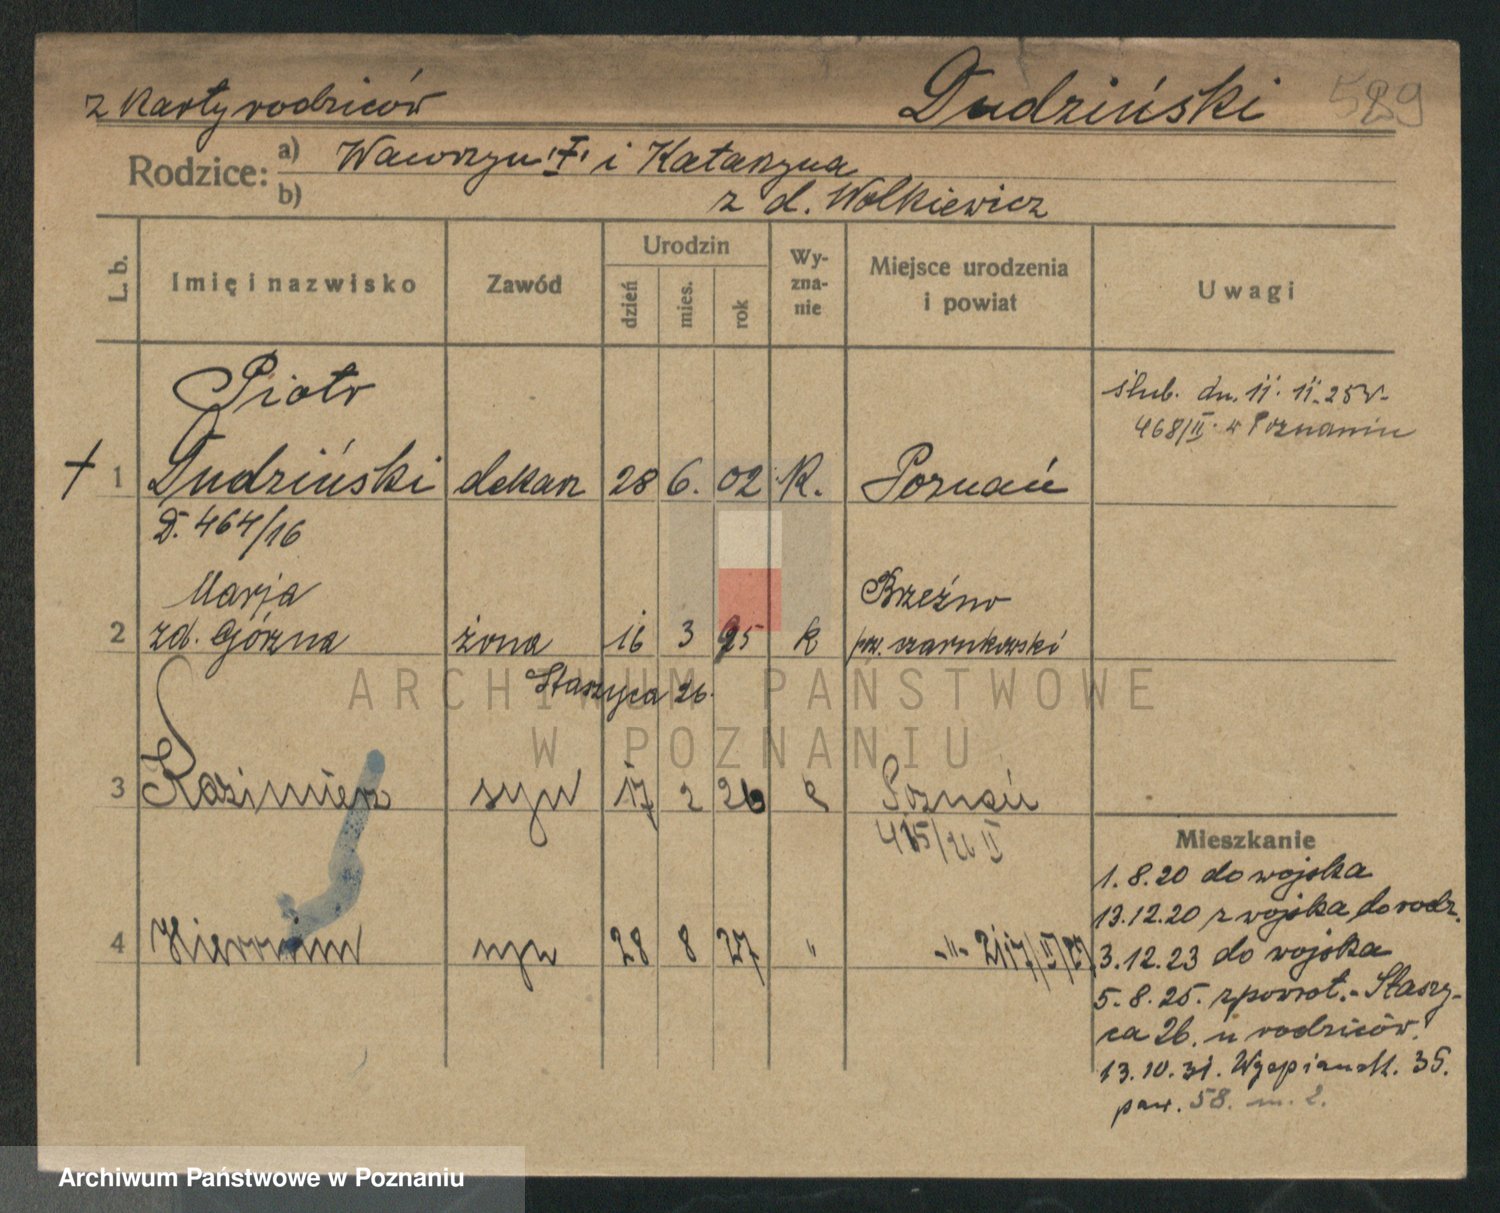 z Karty rodziców
Dudziński 589
Rodzice: a) Wawrzyn "F" i Katarzyna
b) z d. Wolkiewicz
L. b. Imię i nazwisko Zawód Urodzin dzień mies. rok Wy-zna-nie Miejsce urodzenia i powiat Uwagi
Piotr
ślub. dn. 11. 11. 25 r.
468/II. w Poznaniu
+ 1 Dudziński dekarz 28 6. 02 K. Poznań
D. 464/16
Marja Brzeźno
2 zd. Górzna żona 16 3 95 k pow. czarnkowski
Staszyca 26.
ARCHIWUM PAŃSTWOWE
W POZNANIU
3 Kazimierz syn 17 2 26 Poznań
415/26 II
4 Hieronim syn 28 8 27 " -"- 2117/II/27
Mieszkanie
1.8.20 do wojska
13.12.20 z wojska do rodz.
3.12.23 do wojska
5.8.25. z powrot. - Staszy-
ca 26. u rodziców.
13.10.31. Wyspiańsk. 35.
paw. 58. m. 2.
Archiwum Państwowe w Poznaniu